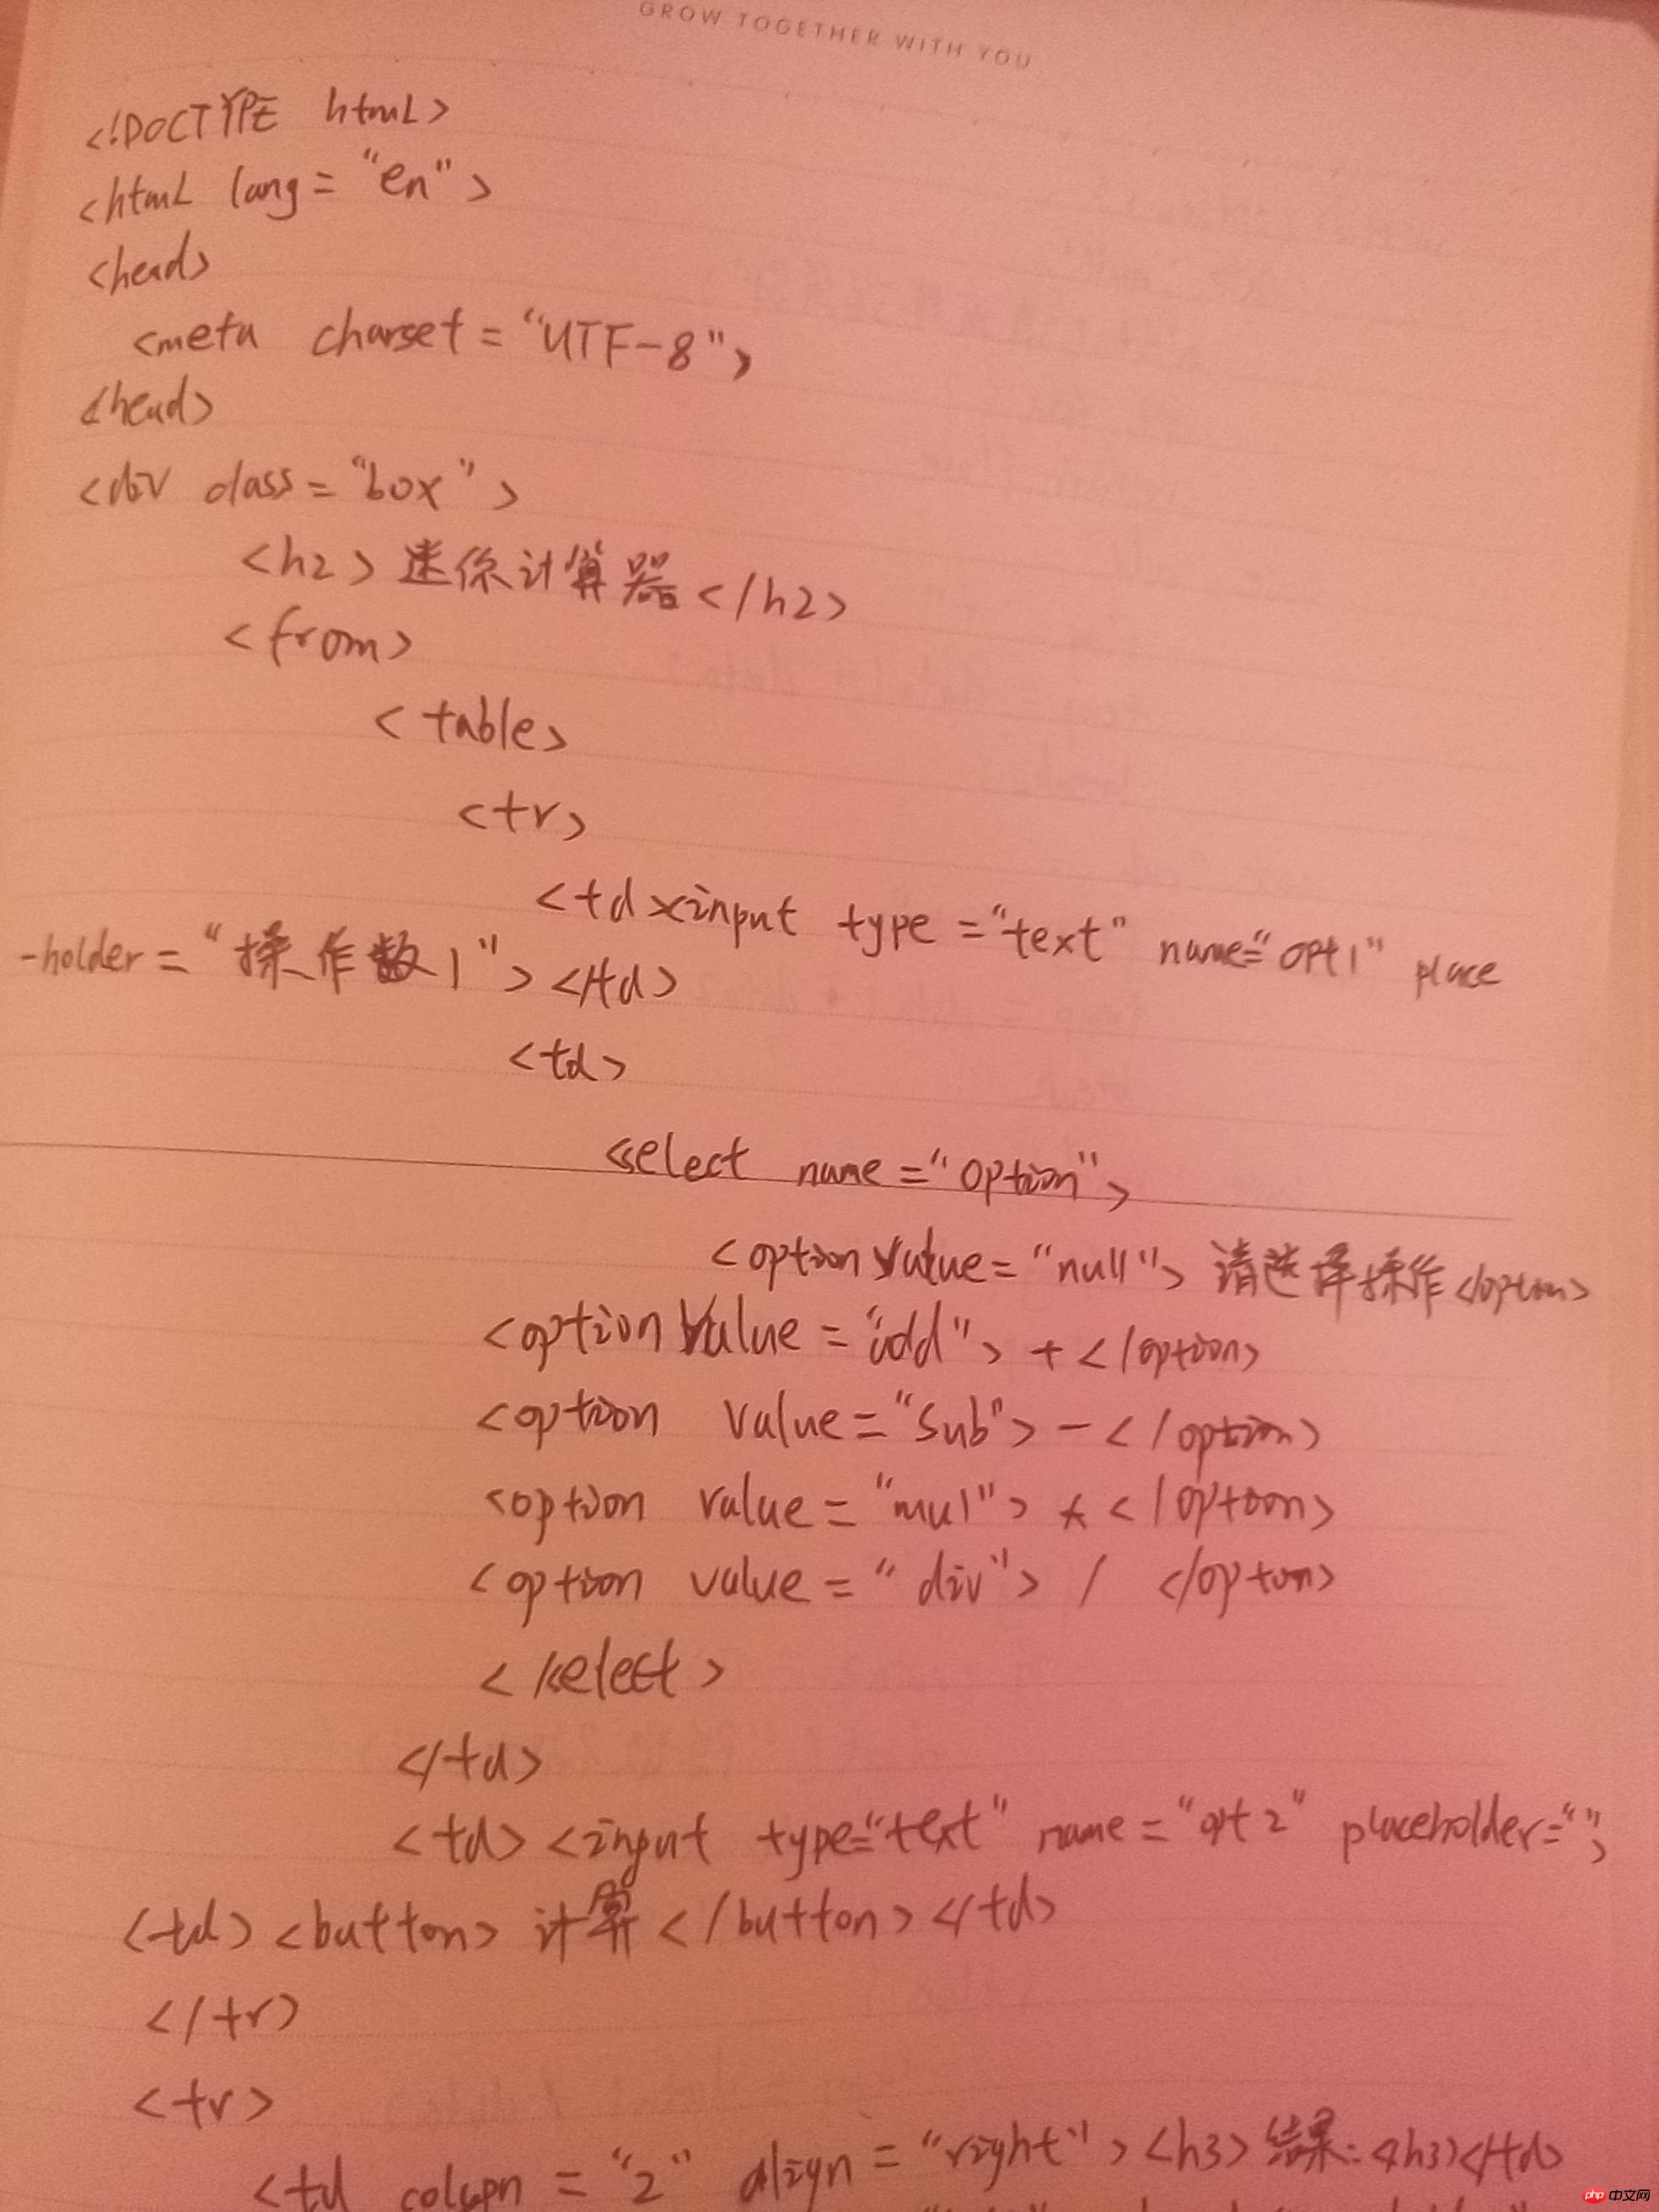 GROW TOGETHER WITH YOU
<!DOCTYPE html>
<html lang="en">
<head>
<meta charset="UTF-8">
</head>
<div class="box">
<h2>迷你计算器</h2>
<from>
<table>
<tr>
<td><input type="text" name="opt1" place
-holder="操作数1"></td>
<td>
<select name="option">
<option value="null">请选择操作</option>
<option value="add">+</option>
<option value="sub">-</option>
<option value="mul">*</option>
<option value="div"> / </option>
</select>
</td>
<td><input type="text" name="opt2" placeholder="">
<td><button>计算</button></td>
</tr>
<tr>
<td colspn="2" align="right"><h3>结果:</h3></td>
php 中文网